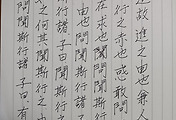 故進之由也兼人
行之赤也惑敢問
在求也問聞斯行
由也問聞斯行諸
之何其聞斯行之
聞斯行諸子曰有